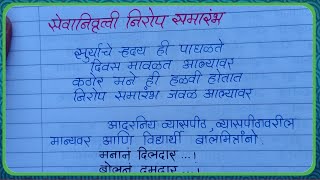 सेवानिवृत्ती निरोप समारंभ
सूर्याचे हृदय ही पाघळते
दिवस मावळत आल्यावर
कठोर मने ही हळवी होतात
निरोप समारंभ जवळ आल्यावर
आदरनिय व्यासपीठ, व्यासपीठावरील
मान्यवर आणि विद्यार्थी बालमित्रांनो.
मनानं दिलदार ...!
बोलनं दमदार ...!